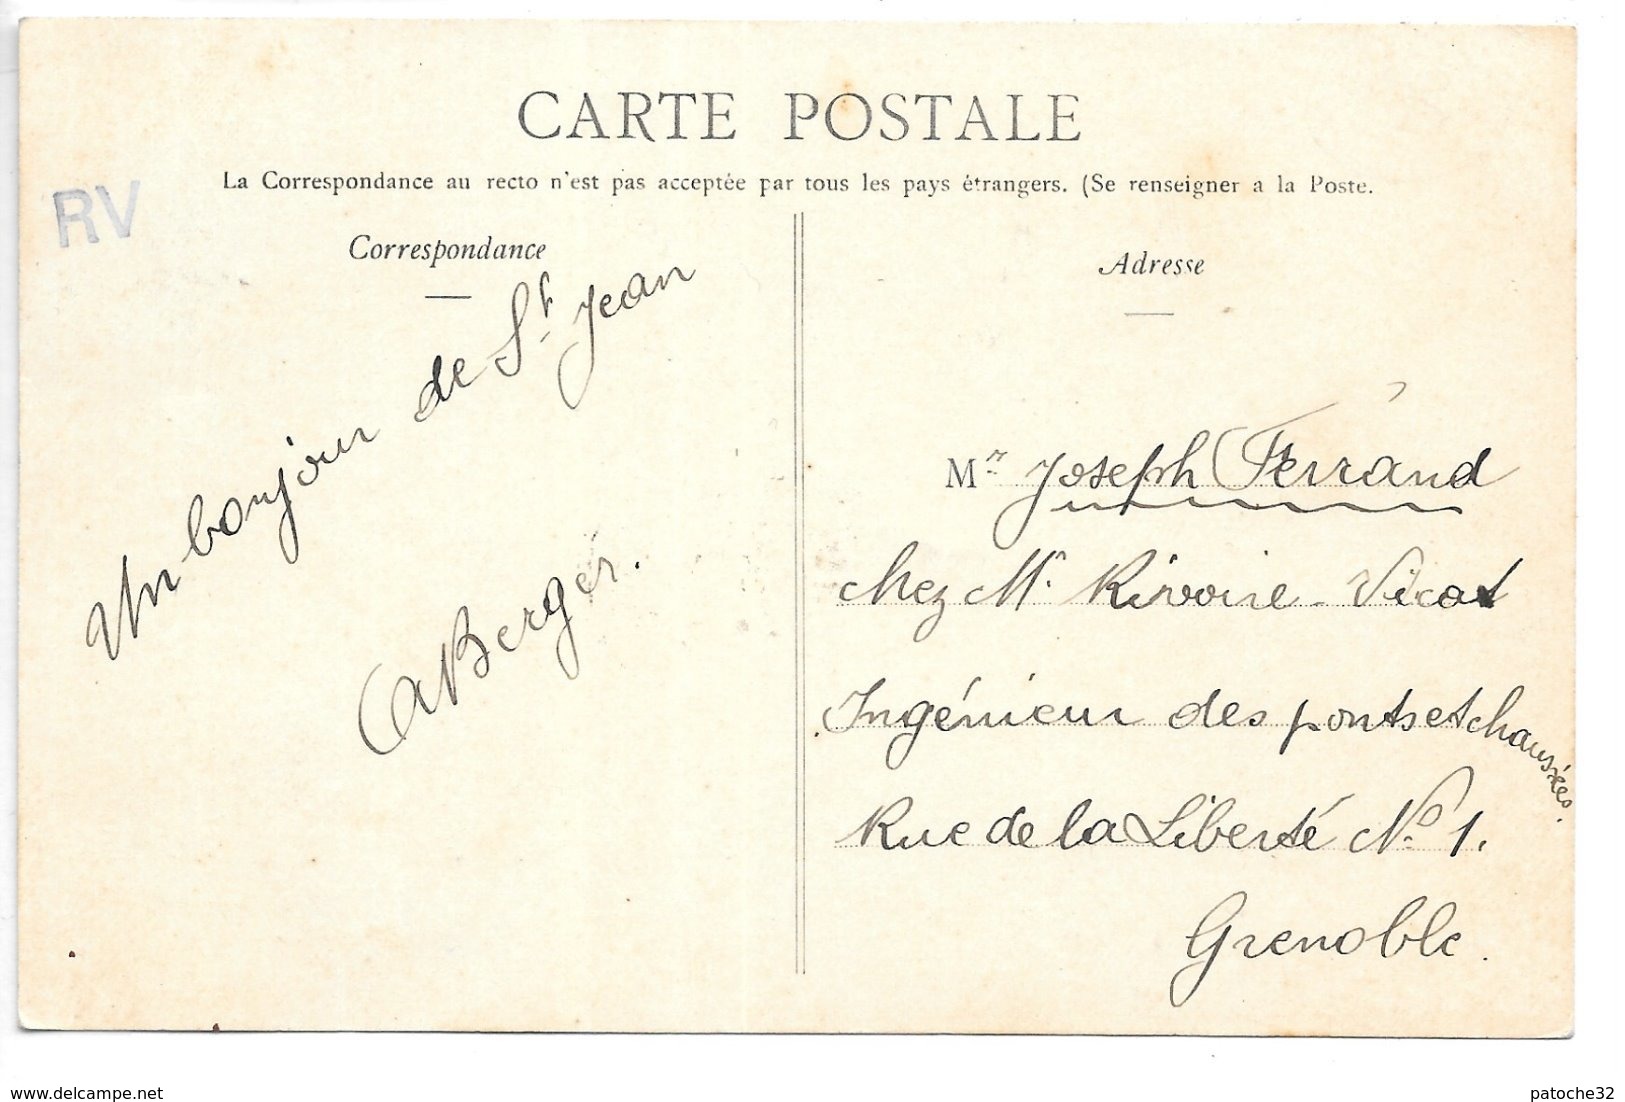 CARTE POSTALE
La Correspondance au recto n'est pas acceptée par tous les pays étrangers. (Se renseigner a la Poste.
RV
Correspondance
Un bonjour de St. Jean
A Berger.
Adresse
Mr Joseph Ferrand
chez Mr. Rivoire-Vicat
Ingénieur des ponts et chaussées.
Rue de la Liberté No 1.
Grenoble.
www.delcampe.net
patoche32